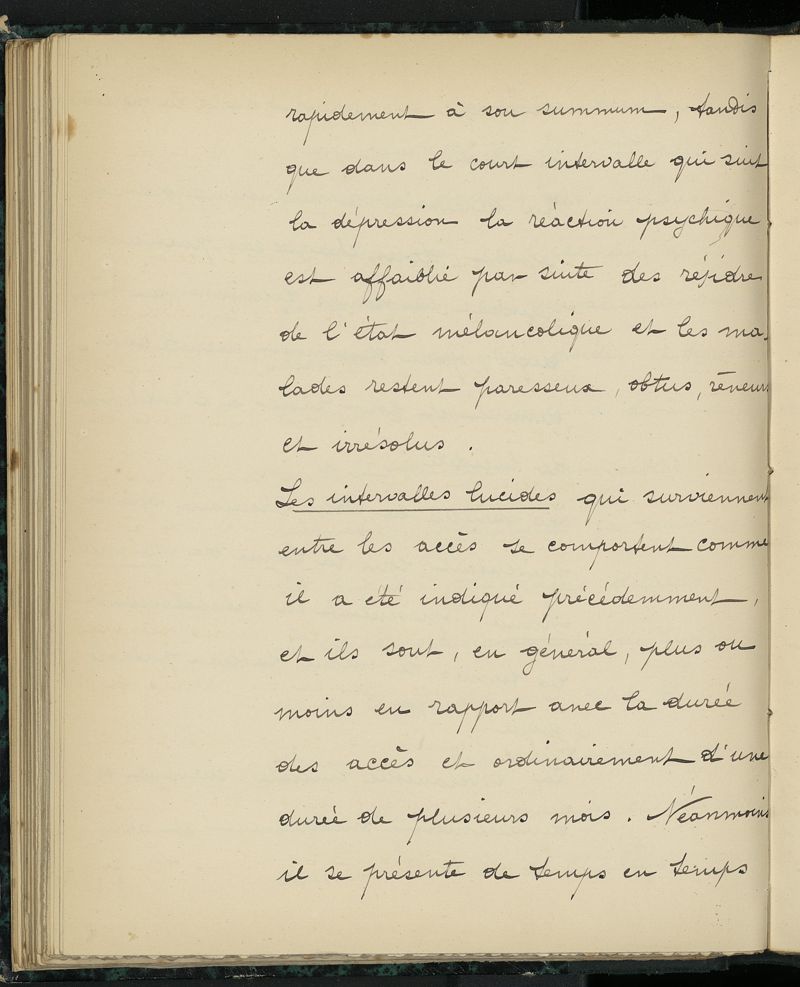 rapidement à son summum, tandis
que dans le court intervalle qui suit
la dépression la réaction psychique
est affaiblié par suite des
de l'état mélancolique et les ma-
lades restent paresseux, obtus, rêveurs
et irrésolus.
Les intervalles lucides qui surviennent
entre les accès se comportent comme
il a été indiqué précédemment,
et ils sont, en général, plus ou
moins en rapport avec la durée
des accès et ordinairement d'une
durée de plusieurs mois. Néanmoins
il se présente de temps en temps